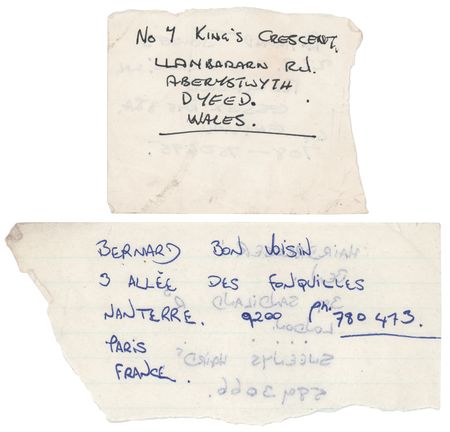 No 7 KING'S CRESCENT.
LLANBADARN RD.
ABERYSTWYTH
DYFED.
WALES.
BERNARD BON VOISIN
3 ALLÉE DES FONQUILLES
NANTERRE. 9200 ph. 780 473.
PARIS
FRANCE.